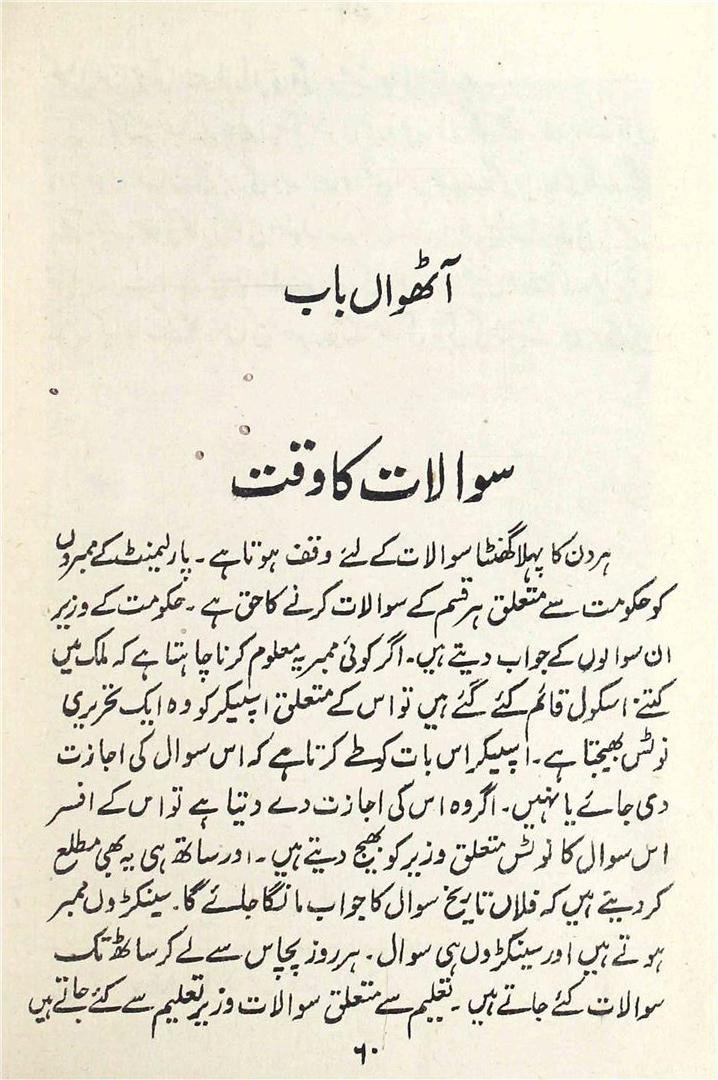 آٹھواں باب
سوالات کا وقت
ہر دن کا پہلا گھنٹا سوالات کے لئے وقف ہوتا ہے۔ پارلیمنٹ کے ممبروں
کو حکومت سے متعلق ہر قسم کے سوالات کرنے کا حق ہے۔ حکومت کے وزیر
ان سوالوں کے جواب دیتے ہیں۔ اگر کوئی ممبر یہ معلوم کرنا چاہتا ہے کہ ملک میں
کتنے اسکول قائم کئے گئے ہیں تو اس کے متعلق اسپیکر کو وہ ایک تحریری
نوٹس بھیجتا ہے۔ اسپیکر اس بات کو طے کرتا ہے کہ اس سوال کی اجازت
دی جائے یا نہیں۔ اگر وہ اس کی اجازت دے دیتا ہے تو اس کے افسر
اس سوال کا نوٹس متعلق وزیر کو بھیج دیتے ہیں۔ اور ساتھ ہی یہ بھی مطلع
کر دیتے ہیں کہ فلاں تاریخ سوال کا جواب مانگا جائے گا۔ سینکڑوں ممبر
ہوتے ہیں اور سینکڑوں ہی سوال۔ ہر روز پچاس سے لے کر ساٹھ تک
سوالات کئے جاتے ہیں۔ تعلیم سے متعلق سوالات وزیر تعلیم سے کئے جاتے ہیں
۶۰